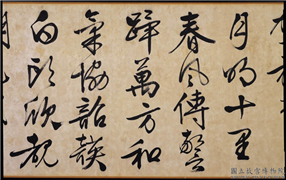 月明十里
春風傳警
蹕萬方和
氣協韶韺
白頭欣覩
國立故宮博物院